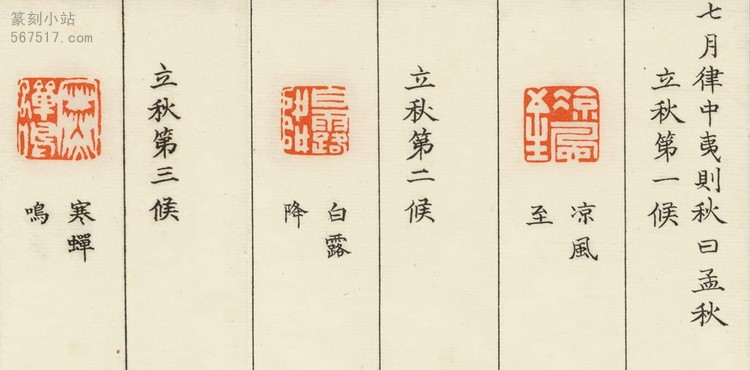 七月律中夷則秋曰孟秋
立秋第一候
涼風
至
凉風
至
立秋第二候
白露
降
白露
降
立秋第三候
寒蟬
鳴
寒蟬
鳴
篆刻小站
567517.com